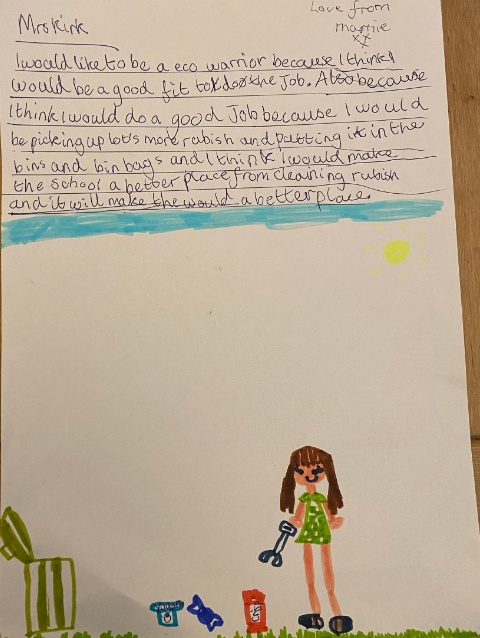 Love from
mattie
xx
Mrs Kirk
I would like to be a eco warrior because I think I
would be a good fit to do the job. Also because
I think I would do a good Job because I would
be picking up lots more rubish and putting it in the
bins and bin bags and I think I would make
the school a better place from cleaning rubish
and it will make the would a better place.